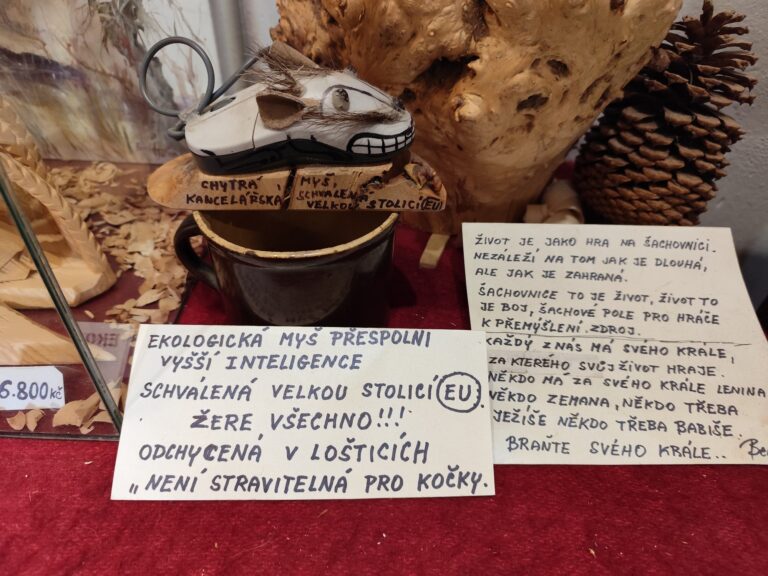 CHYTRÁ
KANCELÁŘSKÁ
MYŠ,
SCHVÁLENÁ
VELKOU STOLICÍ (EU)
EKOLOGICKÁ MYŠ PŘESPOLNÍ
VYŠŠÍ INTELIGENCE
SCHVÁLENÁ VELKOU STOLICÍ (EU).
ŽERE VŠECHNO!!!
ODCHYCENÁ V LOŠTICÍCH
„NENÍ STRAVITELNÁ PRO KOČKY.
ŽIVOT JE JAKO HRA NA ŠACHOVNICI.
NEZÁLEŽÍ NA TOM JAK JE DLOUHÁ,
ALE JAK JE ZAHRANÁ.
ŠACHOVNICE TO JE ŽIVOT, ŽIVOT TO
JE BOJ, ŠACHOVÉ POLE PRO HRÁČE
K PŘEMÝŠLENÍ ZDROJ.
KAŽDÝ Z NÁS MÁ SVÉHO KRÁLE,
ZA KTERÉHO SVŮJ ŽIVOT HRAJE.
NĚKDO MÁ ZA SVÉHO KRÁLE LENINA
NĚKDO ZEMANA, NĚKDO TŘEBA
JEŽÍŠE NĚKDO TŘEBA BABIŠE.
BRAŇTE SVÉHO KRÁLE..
6.800 Kč